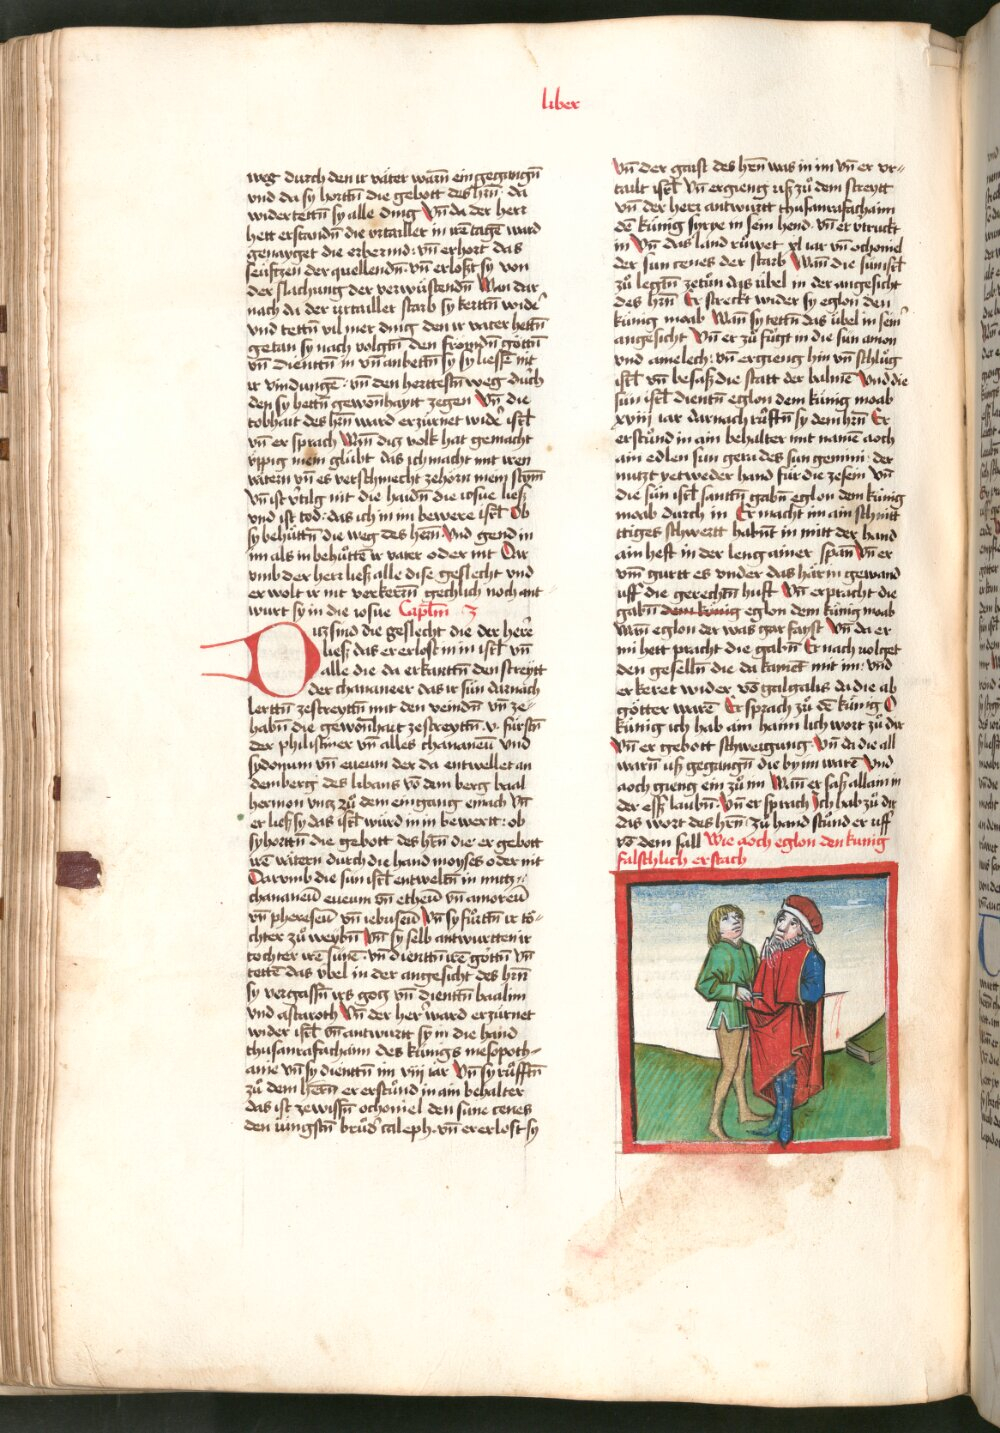 liber
weg durch den ir väter warñ ein gegangñ
vnd da sy hortñ die gebott des hrñ · da
widertettñ sy alle ding Vñ da der herr
hett erstandñ die vrtailler in irē tagē ward
genayget die erbermd · vñ erhort das
seüftzen der quellendñ · vñ erloßt sy von
der slachung der verwüstendñ Wan dar
nach da der vrtailler starb sy kertñ wider
vnd tettñ vil mer ding den ir väter hettñ
getan sy nach volgtñ den fromdñ göttñ
vñ dientñ in vñ anbettñ sy sy liessē nit
ir vindungē · vñ den herttestñ weg durch
den sy hettñ gewonhayt zegen Vñ die
tobhait des hrñ ward erzürnet wider isrl̄
vñ er sprach Wañ diz volk hat gemacht
üppig mein glübt das ich macht mit iren
vätern vñ es verschmecht zehörn mein stym̄
vñ ist vertilg nit die haidñ die iosue ließ
vnd ist tod · das ich in im bewere isrl̄ Ob
sy behüttñ die weg des hrñ · Vnd gend in
im als in behüttē ir väter oder nit Dar
vmb der herr ließ alle dise geslecht vnd
er wolt ir nit verkerñ gechlich noch ant
wurt sy in die iosue Caplm̄ · 3
Diz sind die geslecht die der here
ließ das er erlost in in isrl̄ vñ
alle die da erkantñ den streytt
der chananeer das ir sün darnach
lerttñ zestreyttñ mit den veindñ vñ ze
habñ die gewonhait zestreyttñ · v · fürstñ
der philistiner vñ alles chananeū vnd
sydonum vñ eueum der da entwellet an
dem berg des libans vō dem berg baal
hermon vntz zů dem ein gang emach Vñ
er ließ sy das isrl̄ würd in in bewertt · ob
sy horttñ die gebott des hrñ die er gebott
irē vätern durch die hand moyses oder nit
Darvmb die sün isrl̄ entweltñ in mitz
chananeū eueum vñ etheū vñ amoreū
vñ phereseū vñ iebuseū Vñ sy fürttñ ir tö-
chter zů weybñ Vñ sy selb antwurtten ir
tochter irē sünē · vñ dienttñ irē göttñ vñ
tettē das vbel in der angesicht des hrñ
sy vergassñ irs gotz vñ dientñ baalim
vnd astaroth Vñ der her ward erzürnet
wider isrl̄ vñ antwurtt sy in die hand
thusanrasathaim des künigs mesopoth-
ame vñ sy dientñ im viij iar Vñ sy růfftñ
zů dem herñ er erstůnd in ain behalter
das ist zewissñ othoniel den sune cenes
den iüngstñ brůd caleph · vñ er erlost sy
vñ der gaist des hrñ was in im vñ er vr-
tailt isrl̄ Vñ er gieng uß zů dem streytt
vñ der herr antwurtt thusanrasathaim
dē künig syrye in sein hend · vñ er vertruckt
in Vñ das land růwet xl iar vñ othoniel
der sun cenes der starb Wañ die sün isrl̄
zů legtñ zetůn das übel in der angesicht
des hrñ Er streckt wider sy eglon den
künig moab Wañ sy tettñ das übel in seiner
angesicht Vñ er zů fůgt in die sün amon
vnd amelech · vñ er gieng hin vñ schlůg
isrl̄ vñ besaß die statt der balmē Vnd die
sün isrl̄ dientñ eglon dem künig moab
xviij iar darnach růfftñ sy dem hrñ Er
erstůnd in ain behalter mit namē aoth
ain edlen sun gera des sun gemini · der
nutzt yetweder hand für die zesem vñ
die sün isrl̄ santtñ gabñ eglon dem künig
moab durch in Er macht im ain schnitt
ttiges schwertt habñt in mitt der hand
ain heft in der leng ainer span Vñ er
vm gurtt es vnder das härin gewand
uff die gerechtñ huft Vñ er pracht die
gabñ dem künig eglon dem künig moab
Wañ eglon der was gar fayst Vñ da er
im hett pracht die gabñ Er nach volget
den geselln die da kamēt mit im · vnd
er keret wider vō galgalis da die ab
götter warē Er sprach zů dē künig O
künig ich hab ain haim lich wort zů dir
Vñ er gebott schweigung · Vñ da die all
warñ uß gegangñ die by im warē Vnd
aoch gieng ein zů im Wañ er saß allain in
der eß laubñ · Vñ er sprach Ich hab zů dir
das wort des hrñ · zů hand stůnd er uff
vō dem sall Wie aoch eglon den künig
falschlich erstach